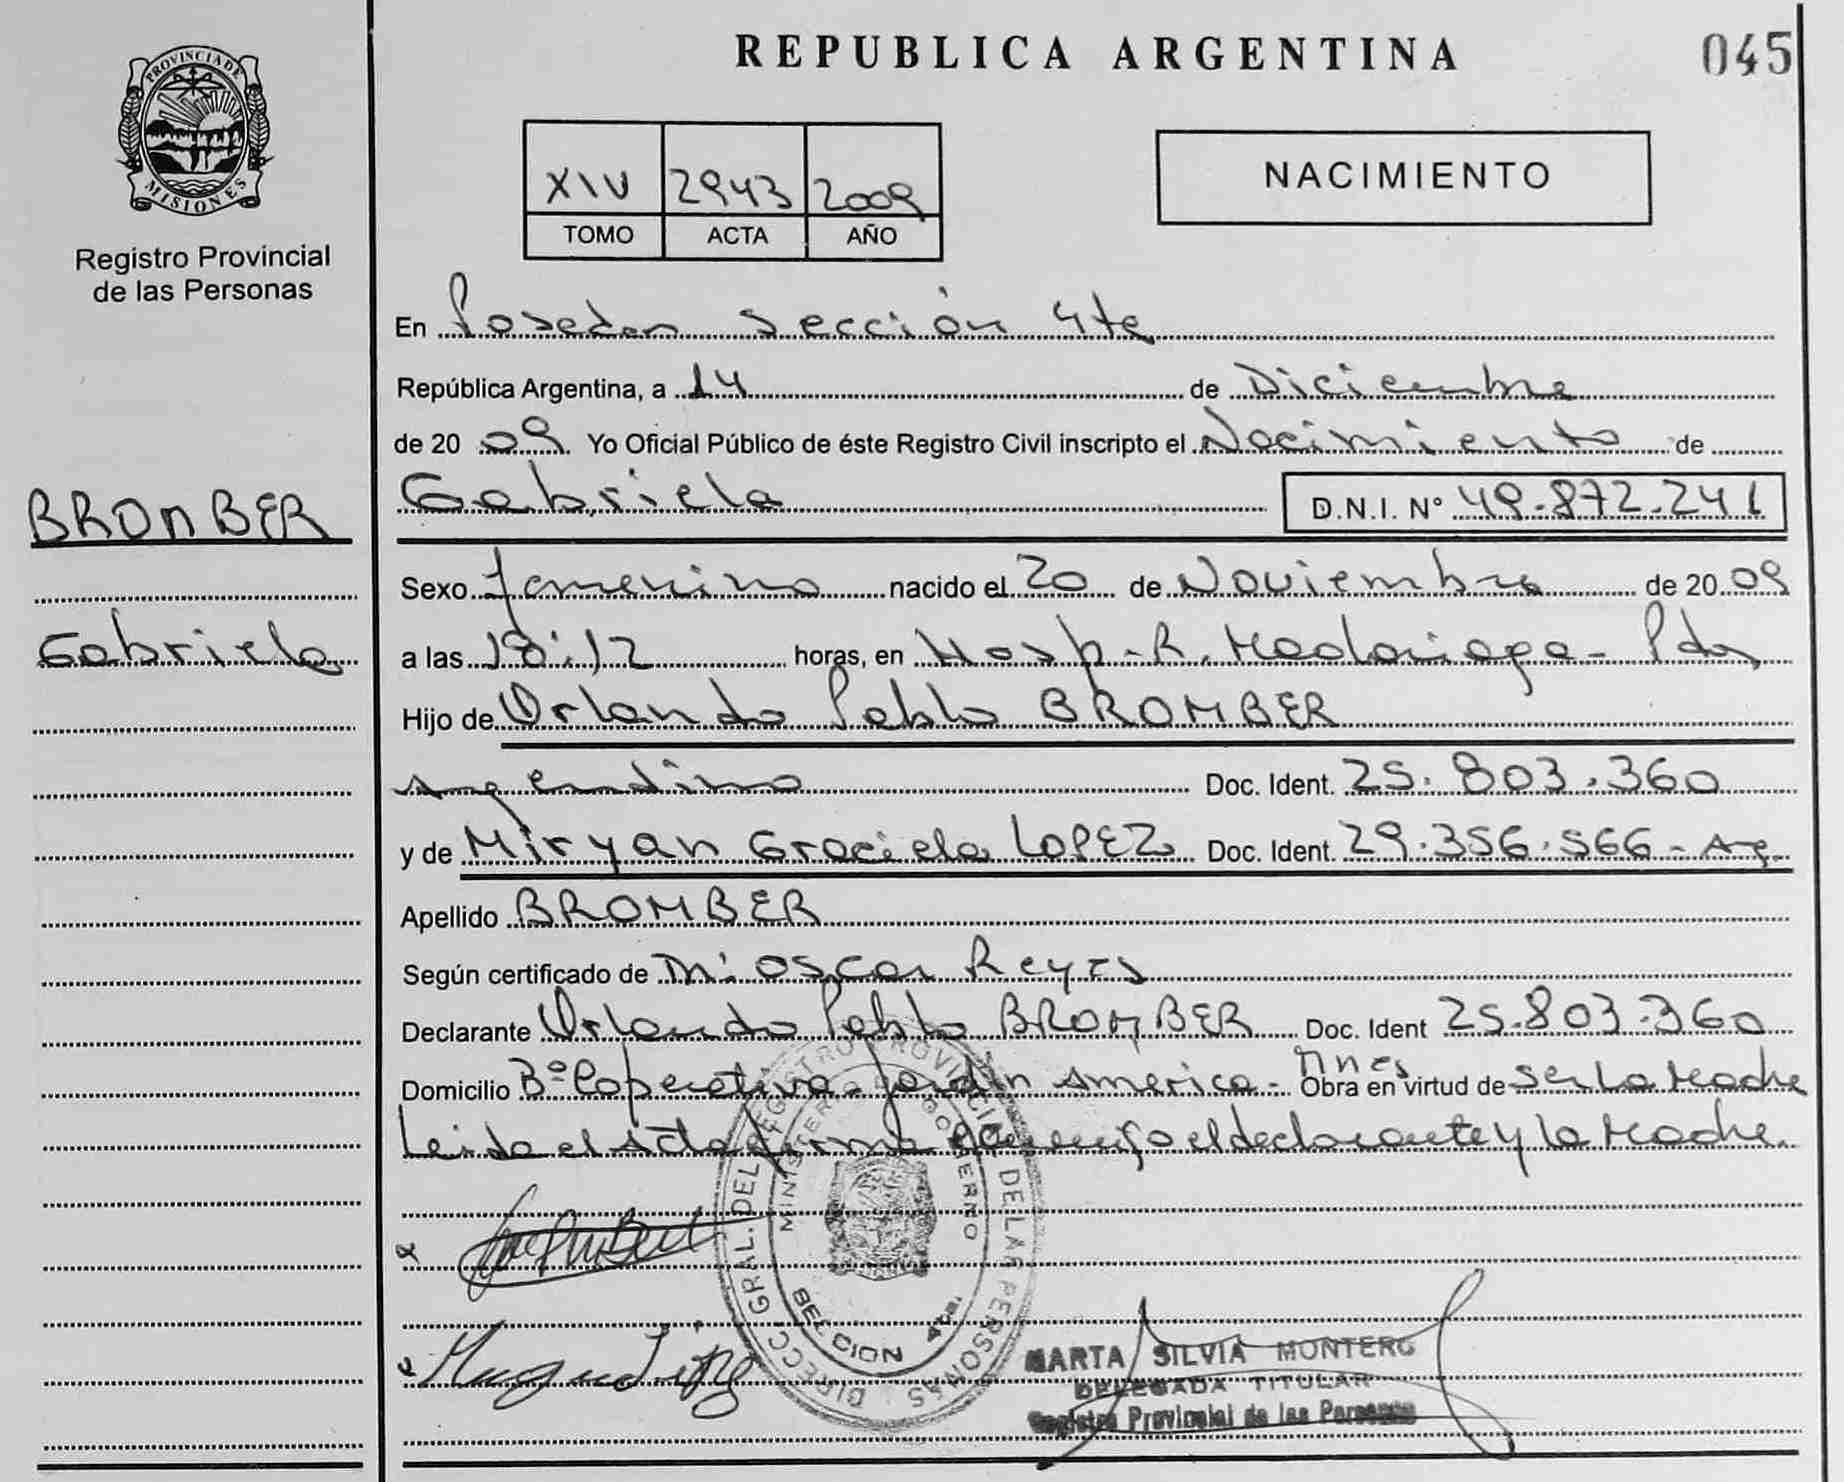 REPUBLICA ARGENTINA
045
PROVINCIA DE
MISIONES
Registro Provincial
de las Personas
XIV 2943 2009
TOMO ACTA AÑO
NACIMIENTO
En Posadas sección 4ta
República Argentina, a 14 de Diciembre
de 20 09 Yo Oficial Público de éste Registro Civil inscripto el Nacimiento de
BROMBER
Gabriela
D.N.I. Nº 49.872.241
Sexo femenino nacido el 20 de Noviembre de 20 09
Gabriela
a las 18:12 horas, en Hosp. R. Madariaga - Pdas
Hijo de Orlando Pablo BROMBER
Argentino Doc. Ident. 25.803.360
y de Miryan Graciela LOPEZ Doc. Ident. 29.356.566 - Arg.
Apellido BROMBER
Según certificado de Oscar Reyes
Declarante Orlando Pablo BROMBER Doc. Ident 25.803.360
Domicilio Bº Coperativa - Jardín America - Mnes Obra en virtud de ser La Madre
Leida el Acta firma conmigo el declarante y la Madre
DIRECC. GRAL. DEL REGISTRO PROVINCIAL DE LAS PERSONAS
MINISTERIO DE GOBIERNO
SECCION 4ta.
MARTA SILVIA MONTERO
DELEGADA TITULAR
Registro Provincial de las Personas